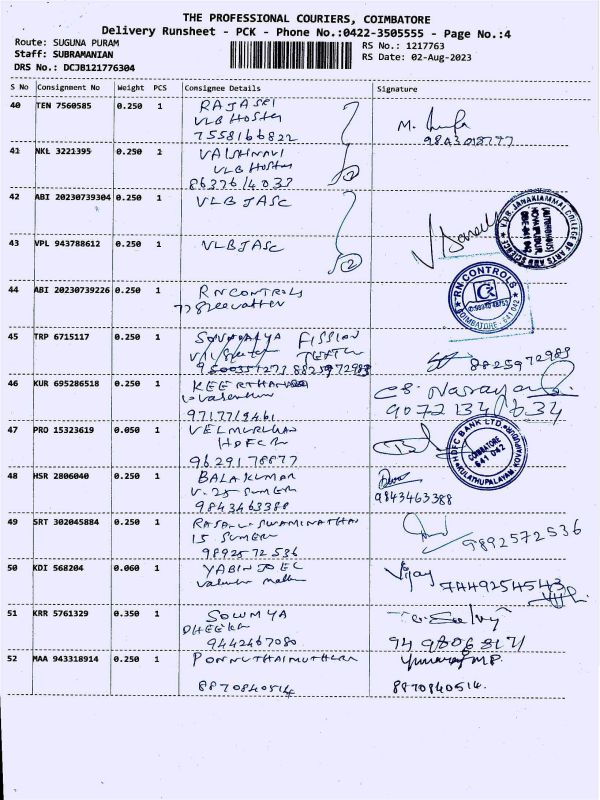 THE PROFESSIONAL COURIERS, COIMBATORE
Delivery Runsheet - PCK - Phone No.:0422-3505555 - Page No.:4
Route: SUGUNA PURAM
Staff: SUBRAMANIAN
DRS No.: DCJB121776304
RS No.: 1217763
RS Date: 02-Aug-2023
S No Consignment No Weight PCS Consignee Details Signature
40 TEN 7560585 0.250 1 RAJASRI
VLB Hostel
7558166822
M.
41 NKL 3221395 0.250 1 VAISHNAVI
VLB Hostel
8637614033
42 ABI 20230739304 0.250 1 VLB JASC
V.L.B. JANAKIAMMAL COLLEGE OF ARTS AND SCIENCE
43 VPL 943788612 0.250 1 VLB JASC
44 ABI 20230739226 0.250 1 RN CONTROLS
RN CONTROLS
COIMBATORE - 641 042
45 TRP 6715117 0.250 1 FISSION
8825972983
8825972983
46 KUR 695286518 0.250 1
9072134634
47 PRO 15323619 0.050 1 VELMURUGAN
HDFC
9629178877
HDFC BANK LTD.
COIMBATORE
641 042
KULATHUPALAYAM, KOVAIPUDUR
48 HSR 2806040 0.250 1 BALAKUMAR
V-25 SUMERU
9843463388
9843463388
49 SRT 302045884 0.250 1 SWAMINATHAN
15 SUMERU
9892572536
9892572536
50 KDI 568204 0.060 1 YABIN JOEL
Vijay
7449254543
51 KRR 5761329 0.350 1 SOWMYA
DHEEKSHA
9442467080
52 MAA 943318914 0.250 1
8870840514
8870840514.